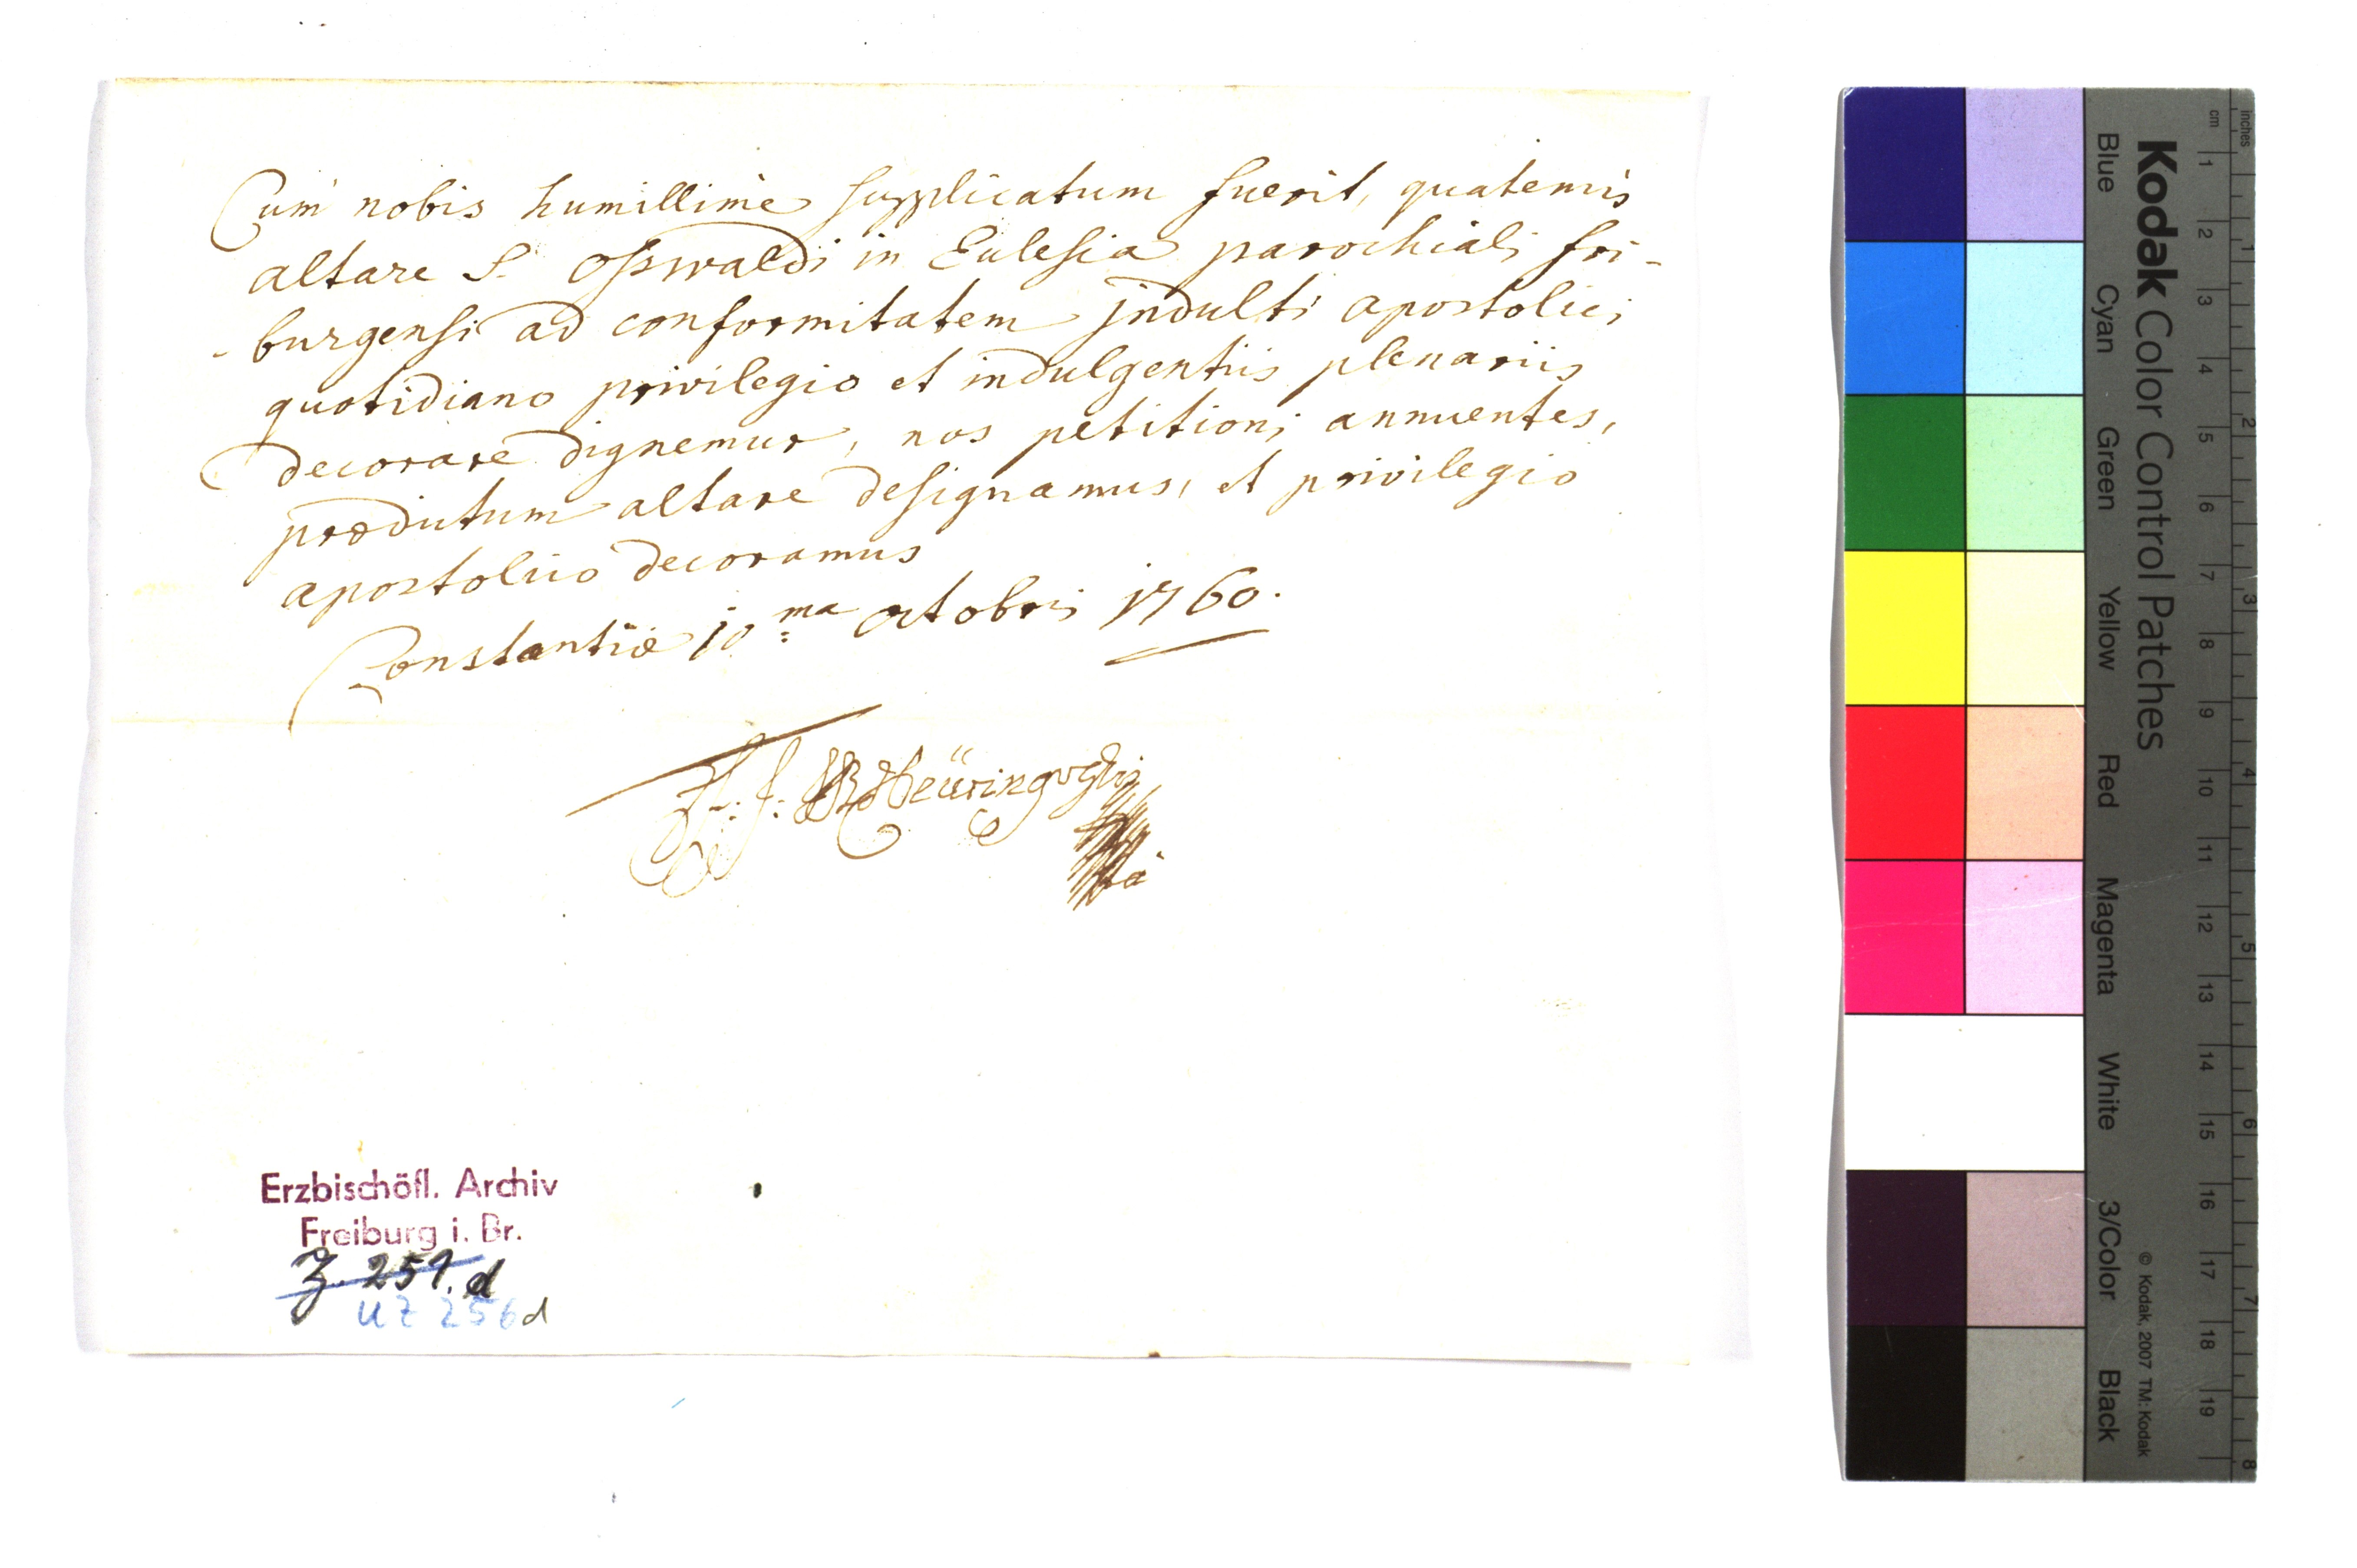 Cum nobis humillime supplicatum fuerit, quatenus
altare S. Osswaldi in Ecclesia parochiali fri-
-burgensi ad conformitatem indulti apostolici
quotidiano privilegio et indulgentiis plenariis
decorare dignemur, nos petitioni annuentes,
prædictum altare designamus, et privilegio
apostolico decoramus
Constantiæ 10ma octobris 1760.
Erzbischöfl. Archiv
Freiburg i. Br.
Z. 251. d
UZ 256 d
Kodak Color Control Patches
Blue Cyan Green Yellow Red Magenta White 3/Color Black
© Kodak, 2007 TM: Kodak
inches 1 2 3 4 5 6 7 8
cm 1 2 3 4 5 6 7 8 9 10 11 12 13 14 15 16 17 18 19